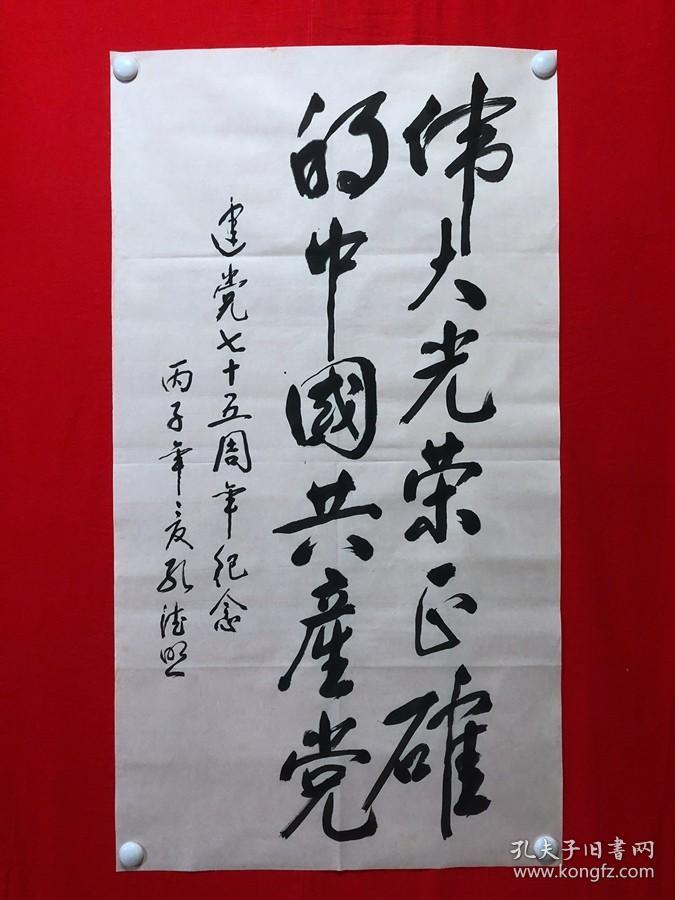 伟大光荣正確
的中國共產党
建党七十五周年纪念
丙子年夏孔德照
孔夫子旧书网
www.kongfz.com